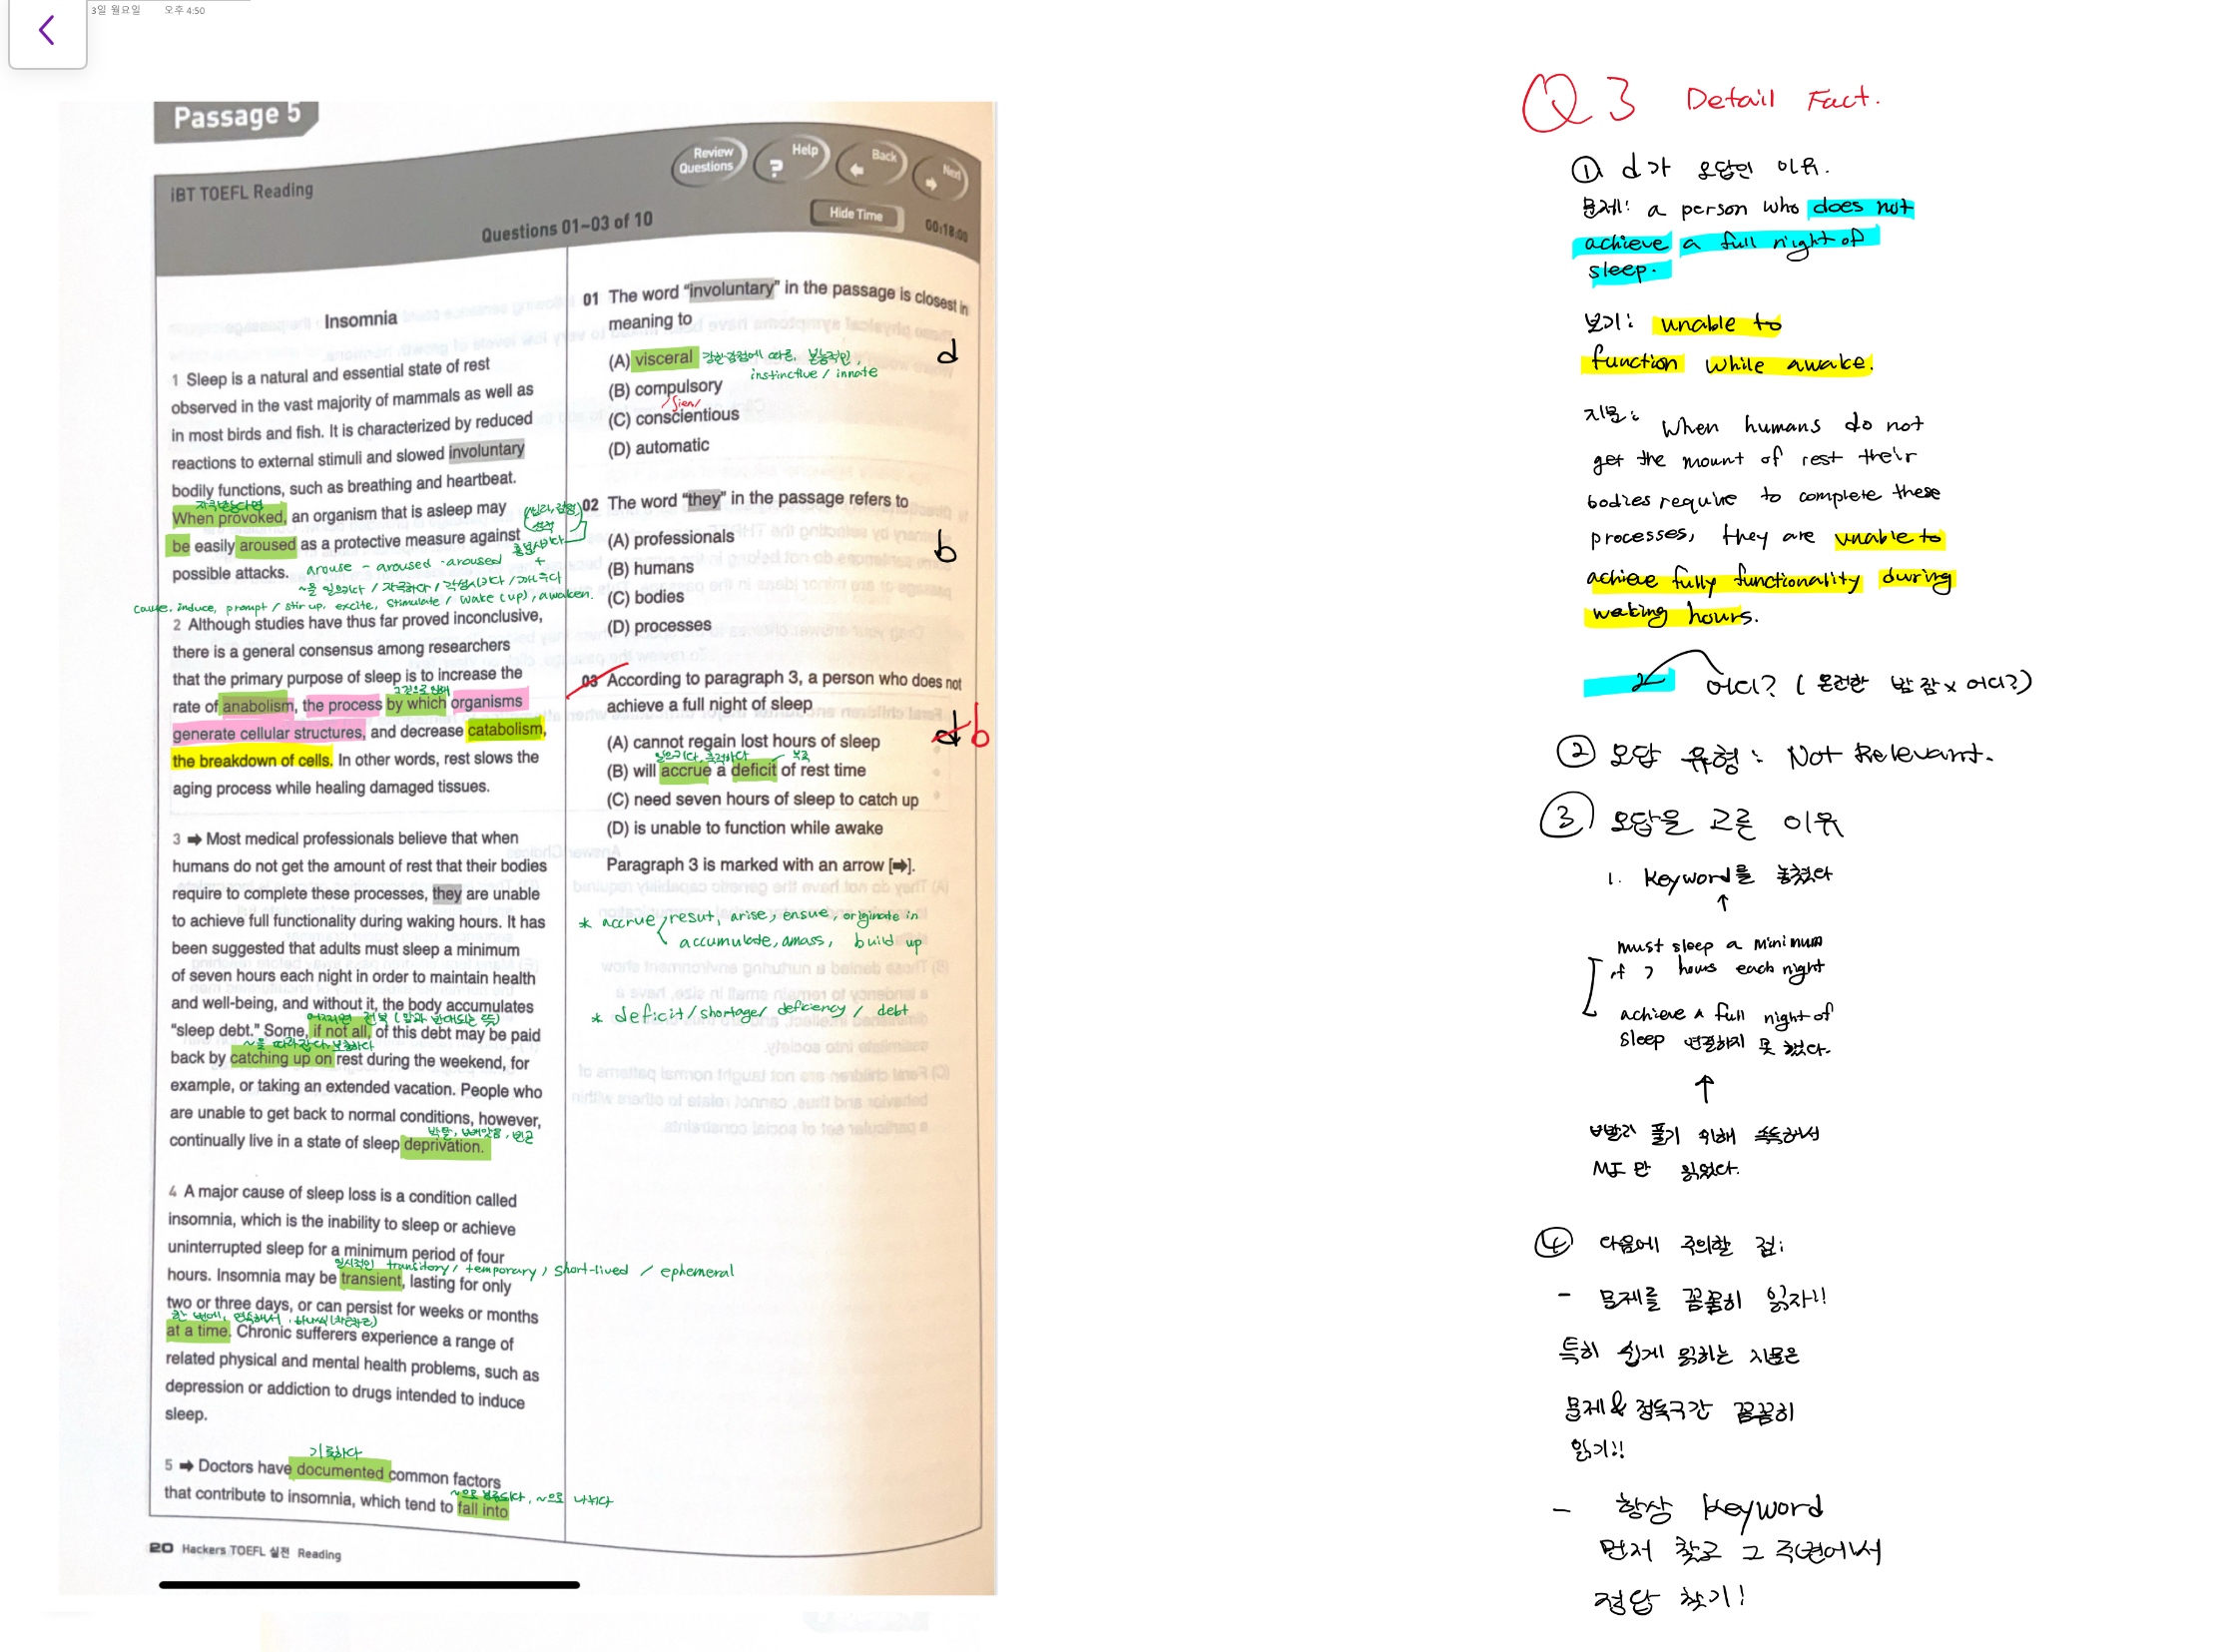 3일 월요일 오후 4:50
Passage 5
iBT TOEFL Reading
Review Questions
Help
Back
Next
Questions 01~03 of 10
Hide Time
00:18:00
Insomnia
1 Sleep is a natural and essential state of rest
observed in the vast majority of mammals as well as
in most birds and fish. It is characterized by reduced
reactions to external stimuli and slowed involuntary
bodily functions, such as breathing and heartbeat.
When provoked, an organism that is asleep may
be easily aroused as a protective measure against
흥분시키다
possible attacks. arouse - aroused - aroused +
~을 일으키다 / 자극하다 / 각성시키다 / 깨우다
cause, induce, prompt / stir up, excite, stimulate / wake (up), awaken.
2 Although studies have thus far proved inconclusive,
there is a general consensus among researchers
that the primary purpose of sleep is to increase the
rate of anabolism, the process by which organisms
generate cellular structures, and decrease catabolism,
the breakdown of cells. In other words, rest slows the
aging process while healing damaged tissues.
3 ➡ Most medical professionals believe that when
humans do not get the amount of rest that their bodies
require to complete these processes, they are unable
to achieve full functionality during waking hours. It has
been suggested that adults must sleep a minimum
of seven hours each night in order to maintain health
and well-being, and without it, the body accumulates
"sleep debt." Some, if not all, of this debt may be paid
back by catching up on rest during the weekend, for
example, or taking an extended vacation. People who
are unable to get back to normal conditions, however,
박탈, 빼앗음, 빈곤
continually live in a state of sleep deprivation.
4 A major cause of sleep loss is a condition called
insomnia, which is the inability to sleep or achieve
uninterrupted sleep for a minimum period of four
일시적인 transitory / temporary, short-lived / ephemeral
hours. Insomnia may be transient, lasting for only
two or three days, or can persist for weeks or months
at a time. Chronic sufferers experience a range of
related physical and mental health problems, such as
depression or addiction to drugs intended to induce
sleep.
기록하다
5 ➡ Doctors have documented common factors
~으로 나뉘다
that contribute to insomnia, which tend to fall into
20 Hackers TOEFL 실전 Reading
01 The word "involuntary" in the passage is closest in
meaning to
d
(A) visceral 강한감정에 따른, 본능적인,
instinctive / innate
(B) compulsory
(C) conscientious
(D) automatic
02 The word "they" in the passage refers to
(A) professionals
b
(B) humans
(C) bodies
(D) processes
03 According to paragraph 3, a person who does not
achieve a full night of sleep
d b
(A) cannot regain lost hours of sleep
일으키다, 축적하다 부족
(B) will accrue a deficit of rest time
(C) need seven hours of sleep to catch up
(D) is unable to function while awake
Paragraph 3 is marked with an arrow [➡].
* accrue resut, arise, ensue, originate in
accumulate, amass, build up
* deficit / shortage / deficiency / debt
Q3 Detail Fact.
① d가 오답인 이유.
문제: a person who does not
achieve a full night of
sleep.
보기: unable to
function while awake.
지문: When humans do not
get the mount of rest their
bodies require to complete these
processes, they are unable to
achieve fully functionality during
waking hours.
어디? (온전한 밤 잠x 어디?)
② 오답 유형: Not Relevant.
③ 오답을 고른 이유
1. Keyword를 놓쳤다
↑
must sleep a minimum
of 7 hours each night
achieve a full night of
sleep 연결하지 못 했다.
↑
빨리 풀기 위해 속독하셔
MI 만 읽었다.
④ 다음에 주의할 점:
- 문제를 꼼꼼히 읽자!!
특히 쉽게 읽히는 지문은
문제& 정독구간 꼼꼼히
읽기!!
- 항상 Keyword
먼저 찾고 그 주변에서
정답 찾기!